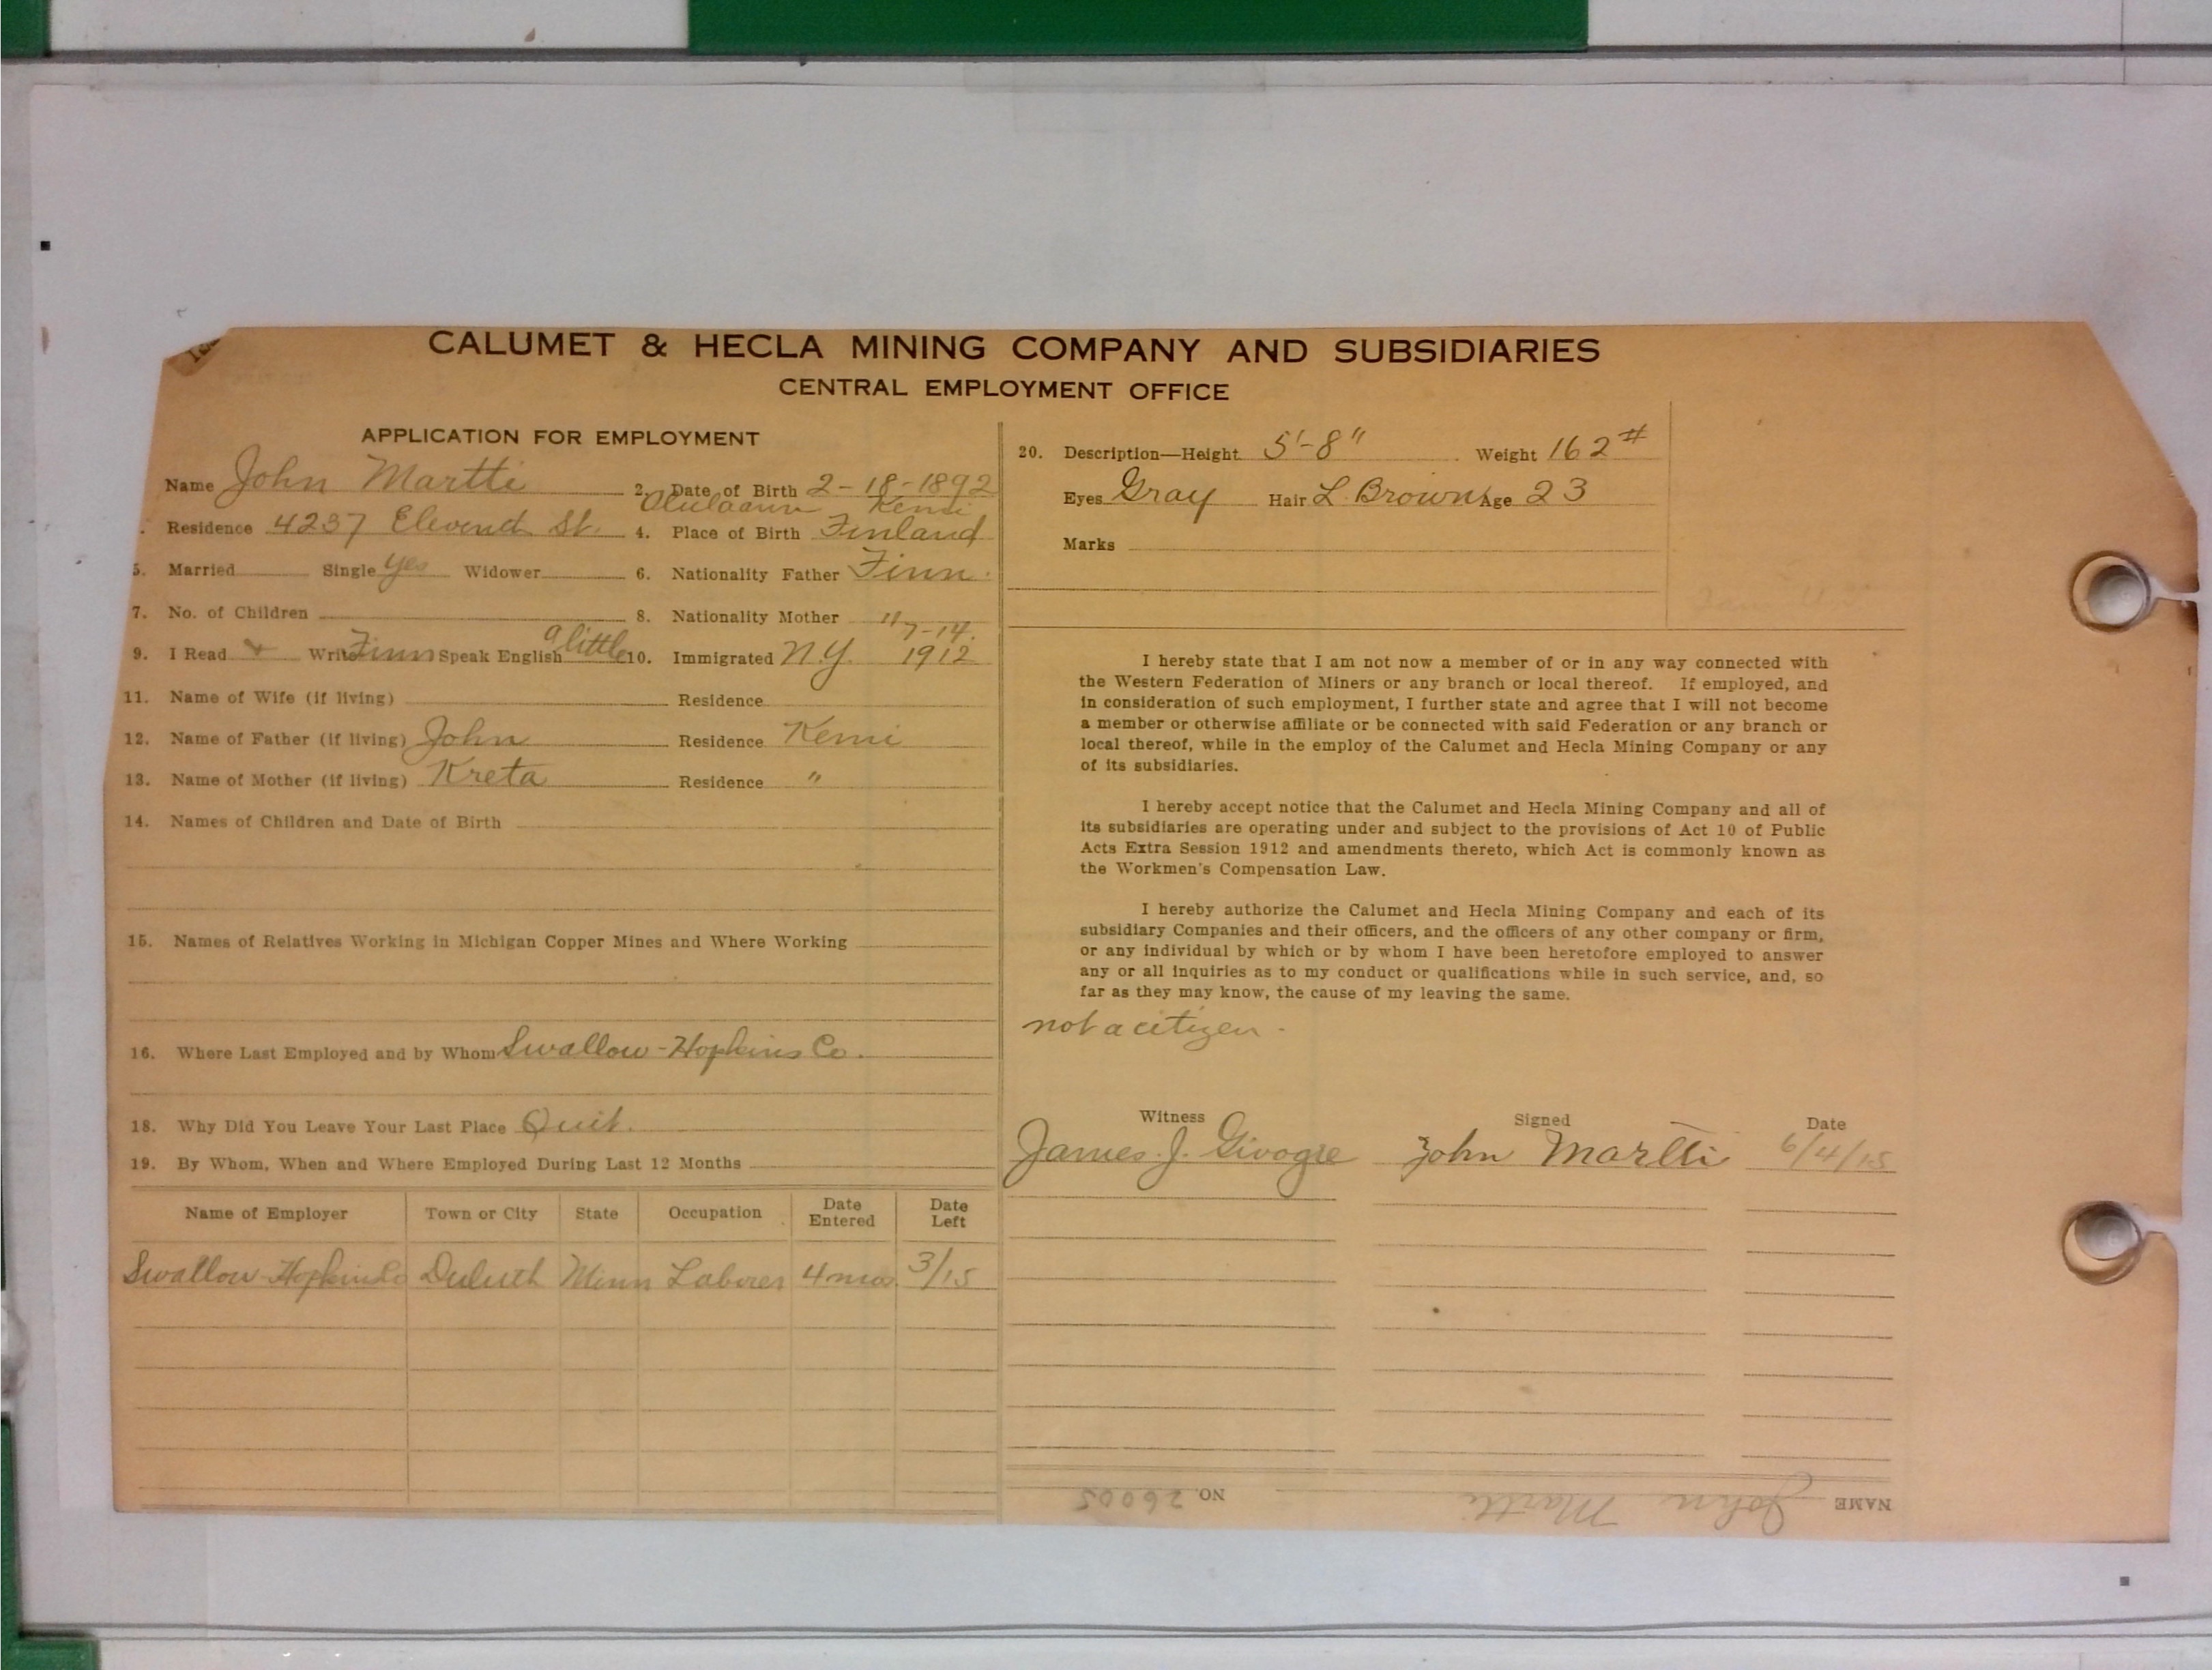 CALUMET & HECLA MINING COMPANY AND SUBSIDIARIES
CENTRAL EMPLOYMENT OFFICE
APPLICATION FOR EMPLOYMENT
Name John Martti 2. Date of Birth 2-18-1892
Kemi
Residence 4237 Elevend St. 4. Place of Birth Finland
5. Married Single yes Widower 6. Nationality Father Finn.
7. No. of Children 8. Nationality Mother "
a little 7-14.
9. I Read & Write Finn Speak English 10. Immigrated N.Y. 1912
11. Name of Wife (if living) Residence
12. Name of Father (if living) John Residence Kemi
13. Name of Mother (if living) Kreta Residence "
14. Names of Children and Date of Birth
15. Names of Relatives Working in Michigan Copper Mines and Where Working
16. Where Last Employed and by Whom Swallow-Hopkins Co.
18. Why Did You Leave Your Last Place Quit.
19. By Whom, When and Where Employed During Last 12 Months
Name of Employer Town or City State Occupation Date Entered Date Left
Swallow-Hopkins Co Duluth Minn Laborer 4 mos. 3/15
20. Description—Height 5'-8" Weight 162#
Eyes Gray Hair L. Brown Age 23
Marks
I hereby state that I am not now a member of or in any way connected with
the Western Federation of Miners or any branch or local thereof. If employed, and
in consideration of such employment, I further state and agree that I will not become
a member or otherwise affiliate or be connected with said Federation or any branch or
local thereof, while in the employ of the Calumet and Hecla Mining Company or any
of its subsidiaries.
I hereby accept notice that the Calumet and Hecla Mining Company and all of
its subsidiaries are operating under and subject to the provisions of Act 10 of Public
Acts Extra Session 1912 and amendments thereto, which Act is commonly known as
the Workmen's Compensation Law.
I hereby authorize the Calumet and Hecla Mining Company and each of its
subsidiary Companies and their officers, and the officers of any other company or firm,
or any individual by which or by whom I have been heretofore employed to answer
any or all inquiries as to my conduct or qualifications while in such service, and, so
far as they may know, the cause of my leaving the same.
not a citizen.
Witness Signed Date
James J. John Martti 6/4/15
NAME John Martti NO. 26005